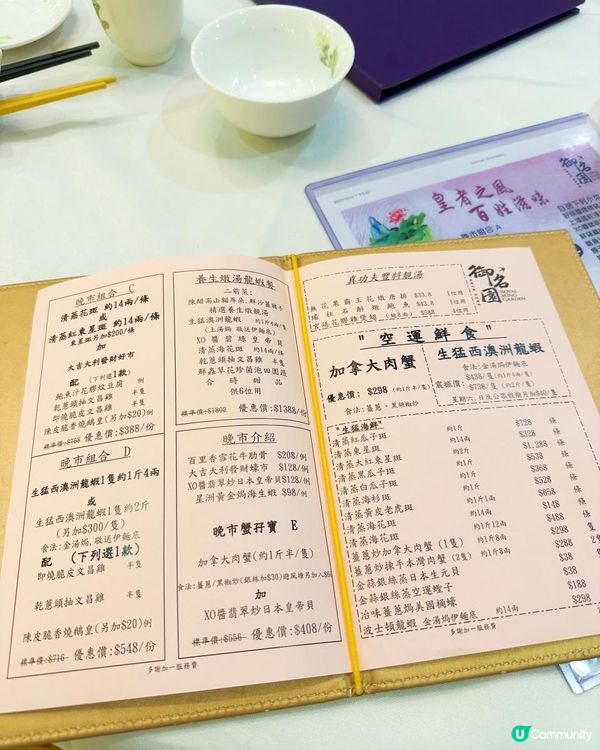 晚市組合 C
清蒸花斑 約14兩/條
或
清蒸紅東星斑 約14兩/條
東星斑另加$200/條
加
大吉大利發財好市
配 (下列選1款)
鮑魚汁花膠炆豆腐 例
乾蔥頭抽文昌雞 半隻
即燒脆皮文昌雞 半隻
陳皮脆香燒鵝皇(另加$20) 例
標準價:$768 優惠價:$388/份
晚市組合 D
生猛西澳洲龍蝦1隻約1斤4兩
或
生猛西澳洲龍蝦1隻約2斤
(另加$300/隻)
食法:金湯焗,敬送伊麵底
配 (下列選1款)
即燒脆皮文昌雞 半隻
乾蔥頭抽文昌雞 半隻
陳皮脆香燒鵝皇(另加$20) 例
標準價:$716 優惠價:$548/份
養生燉湯龍蝦餐
二前菜:
陳醋高山雲耳,鮮沙薑豬手
精選養生燉靚湯
生猛澳洲龍蝦 (約1斤4兩/隻)
(上湯焗,敬送伊麵底)
XO醬碧綠皇帝貝
清蒸海花斑 (約14兩/條)
乾蔥頭抽文昌雞 半隻
鮮蟲草花珍菌泡田園蔬
合時甜品
供6位用
標準價:$1802 優惠價:$1388/份
晚市介紹
百里香雪花牛肋骨 $208/例
大吉大利發財蠔市 $128/例
XO醬翡翠炒日本皇帝貝$128/例
星洲黃金焗海生蝦 $98/例
晚市蟹孖寶 E
加拿大肉蟹(約1斤半/隻)
食法:薑蔥/黑椒炒(銀絲加$30)避風塘另加入$6
加
XO醬翡翠炒日本皇帝貝
標準價:$556 優惠價:$408/份
多謝加一服務費
真功夫豐料靚湯
無花果霸王花燉唐排 $33.8 1位用
瑤柱石斛燉鮑魚 $43.8 1位用
宮廷花膠雞煲翅 (翅8兩) $588 4位用
御名園
ROYAL
MING
GARDEN
"空運鮮食"
加拿大肉蟹
優惠價: $298 (約1斤半/隻)
食法:薑蔥、黑胡椒炒
生猛西澳洲龍蝦
食法:金湯焗伊麵底
震撼價: $438/隻(約1斤4兩/隻)
$738/隻(約2斤/隻)
星期六、日及公眾假期另加$40/隻
"生猛海鮮"
清蒸紅瓜子斑 約1斤 $728 條
清蒸東星斑 約14兩 $328 條
清蒸大紅東星斑 約2斤 $1,288 條
清蒸黑瓜子斑 約1斤 $538 條
清蒸白瓜子斑 約1斤 $368 條
清蒸海杉斑 約1斤 $528 條
清蒸黃皮老虎斑 約1斤1兩 $658 條
清蒸海花斑 約14兩 $148
清蒸海花斑 約1斤12兩 $488
薑蔥炒加拿大肉蟹 (1隻) 約1斤8兩 $388
薑蔥炒揀手本灣肉蟹 (2隻) 約1斤8兩 $288
金蒜銀絲蒸日本生元貝 $38
金蒜銀絲蒸空運蟶子 $38
沿味薑蔥焗美國桶蠔 $188
波士頓龍蝦 金湯焗伊麵底 約14兩 $298
多謝加一服務費
皇者之風
百姓滋味
晚市組合 A
御名園
U Community